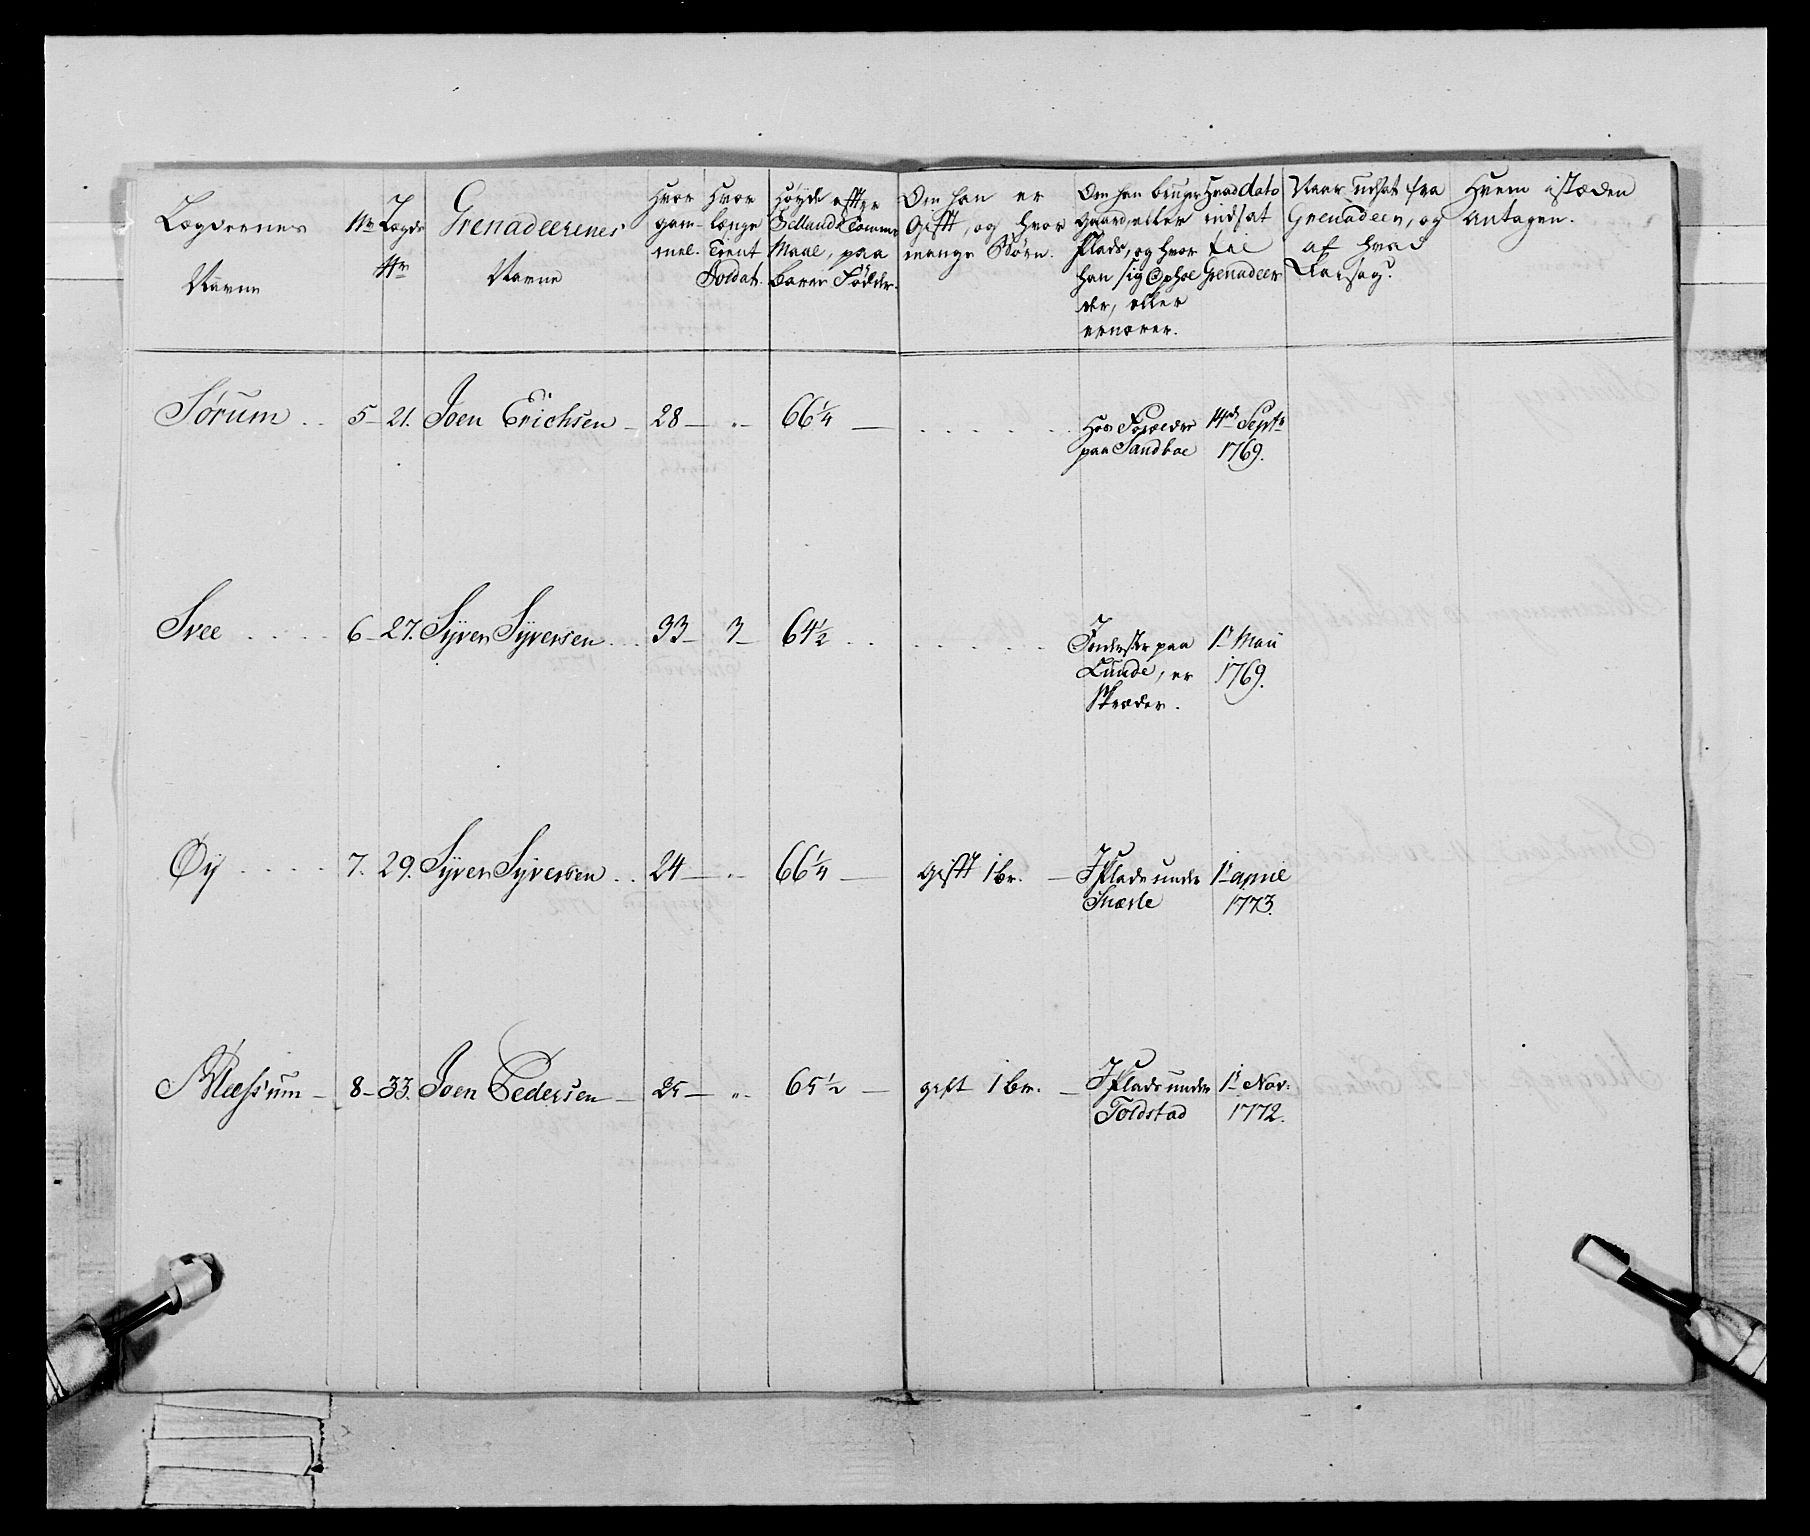 Lægdernes
Navne
Nr
Lægds
Nr
Grenadeerenes
Navne
Hvor
gam-
mel.
Hvor
længe
Tient
Soldat.
Høyde effter
Sellands Tomme
Maal, paa
barer Fødder.
Om han er
Gifft, og hvor
mange Børn.
Om han bruger
Gaard, eller
Plads, og hvor
han sig Ophol
der, eller
ernærer.
Hvad dato
indsat
til
Grenadeer
Naar udsat fra
Grenadeer, og
af hvad
Aarsag.
Hvem istæden
Antagen.
Sørum . . 5 – 21. Joen Erichsen – 28 – „ – 66 1/4 – . . . . . . Hos Forældre 14de Septr
paa Sandboe 1769.
Svee . . . . . 6 – 27. Syver Syversen . . . 33 – 3 – 64 1/2 . . . . . . . . Inderster paa 1r Maii
Lunde, er 1769.
Skræder.
Øÿ . . . . 7. 29. Syver Syversen . . 24 – „ – 66 1/4 – gifft 1 br. – J Plads under 1r april
Snærle 1773.
Bleessum – 8 – 33. Joen Pedersen – 25 – „ – 65 1/2 – gift 1 br. – J Plads under 1r Nov:
Toldstad 1772.